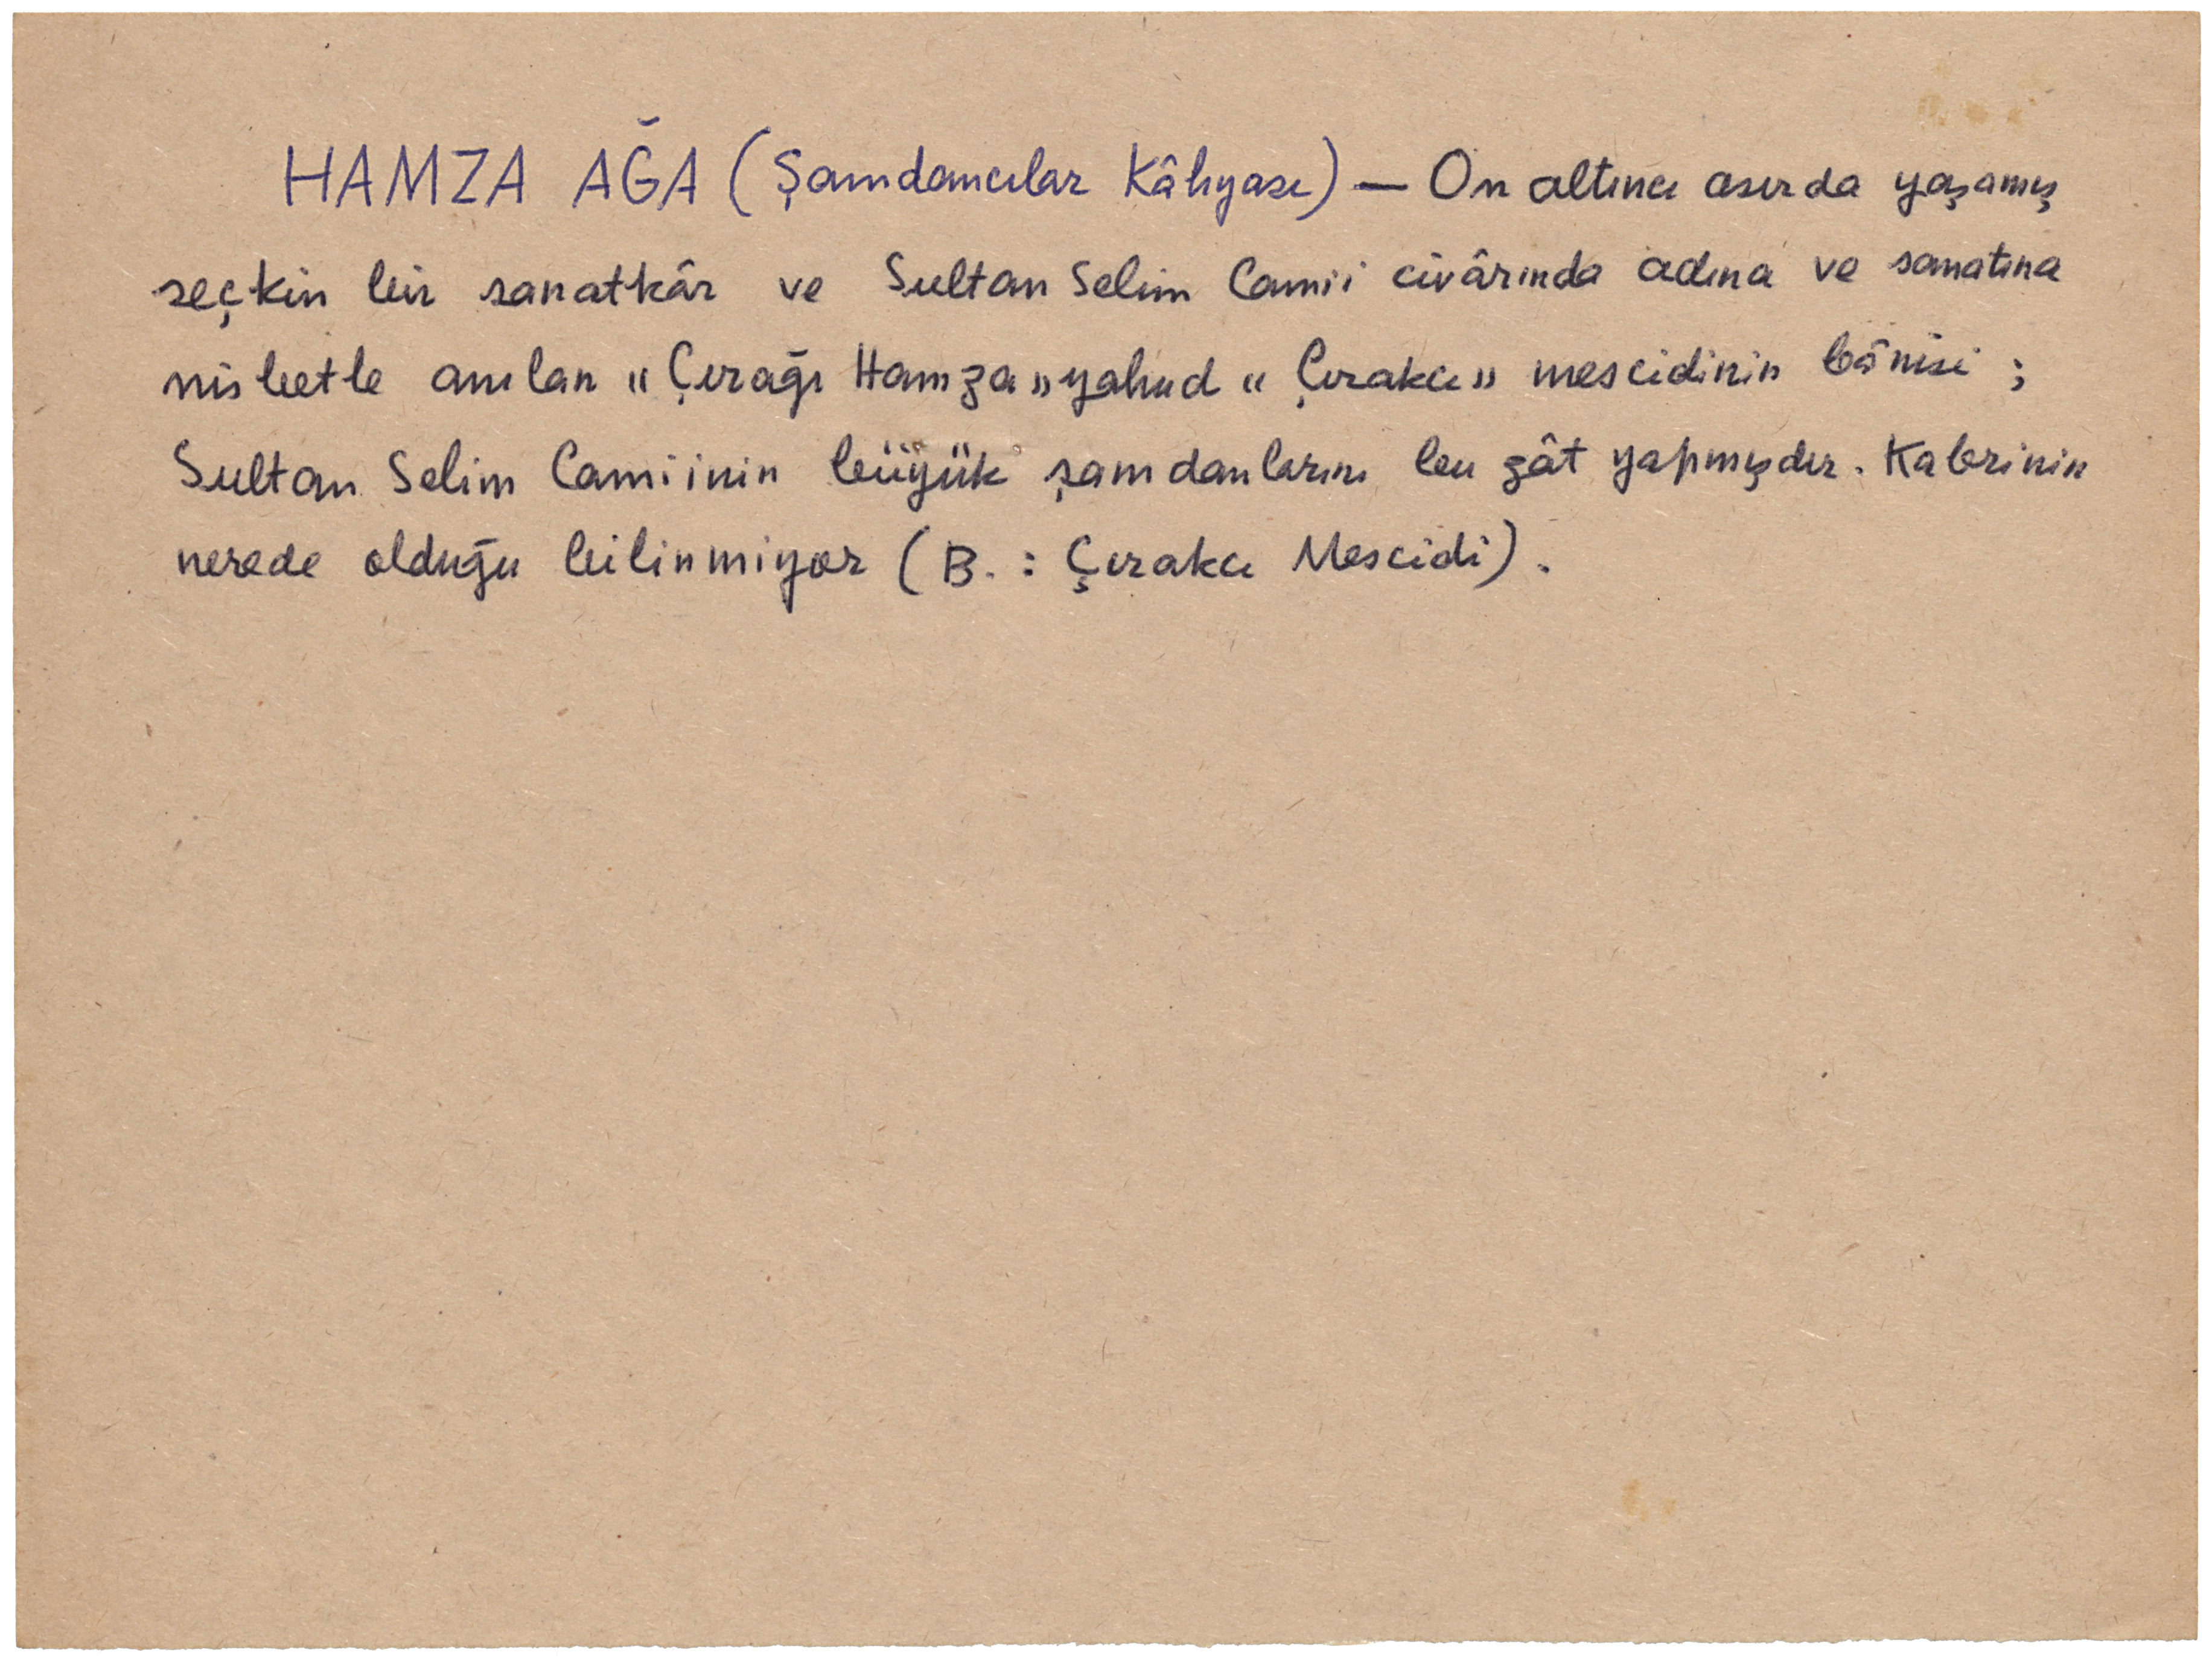 HAMZA AĞA (Şamdancılar Kâhyası) — On altıncı asırda yaşamış
seçkin bir sanatkâr ve Sultan Selim Camii civârında adına ve sanatına
nisbetle anılan "Çırağı Hamza" yahud "Çırakcı" mescidinin bânîsi ;
Sultan Selim Camiinin büyük şamdanlarını bu zât yapmışdır. Kabrinin
nerede olduğu bilinmiyor (B. : Çırakcı Mescidi).